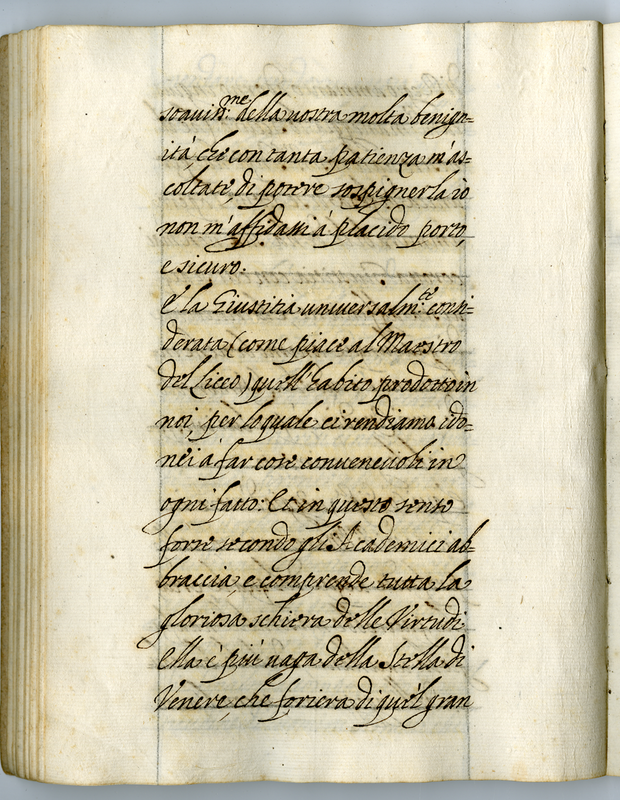 soauiss:me della uostra molta benign-
ità, che con tanta patienza m'as-
coltate, di potere sospignerla io
non m'affidassi à placido porto,
e sicuro.
E' la Giustitia uniuersalm:te consi-
derata (come piace al Maestro
del Liceo) quell'habito prodotto in
noi, per lo quale ci rendiamo ido-
nei à far cose conueneuoli in
ogni fatto: Et in questo senso
forse secondo gli Academici ab-
braccia, e comprende tutta la
gloriosa schiera delle Virtudi
ella è più uaga della Stella di
Venere, che foriera di quel gran